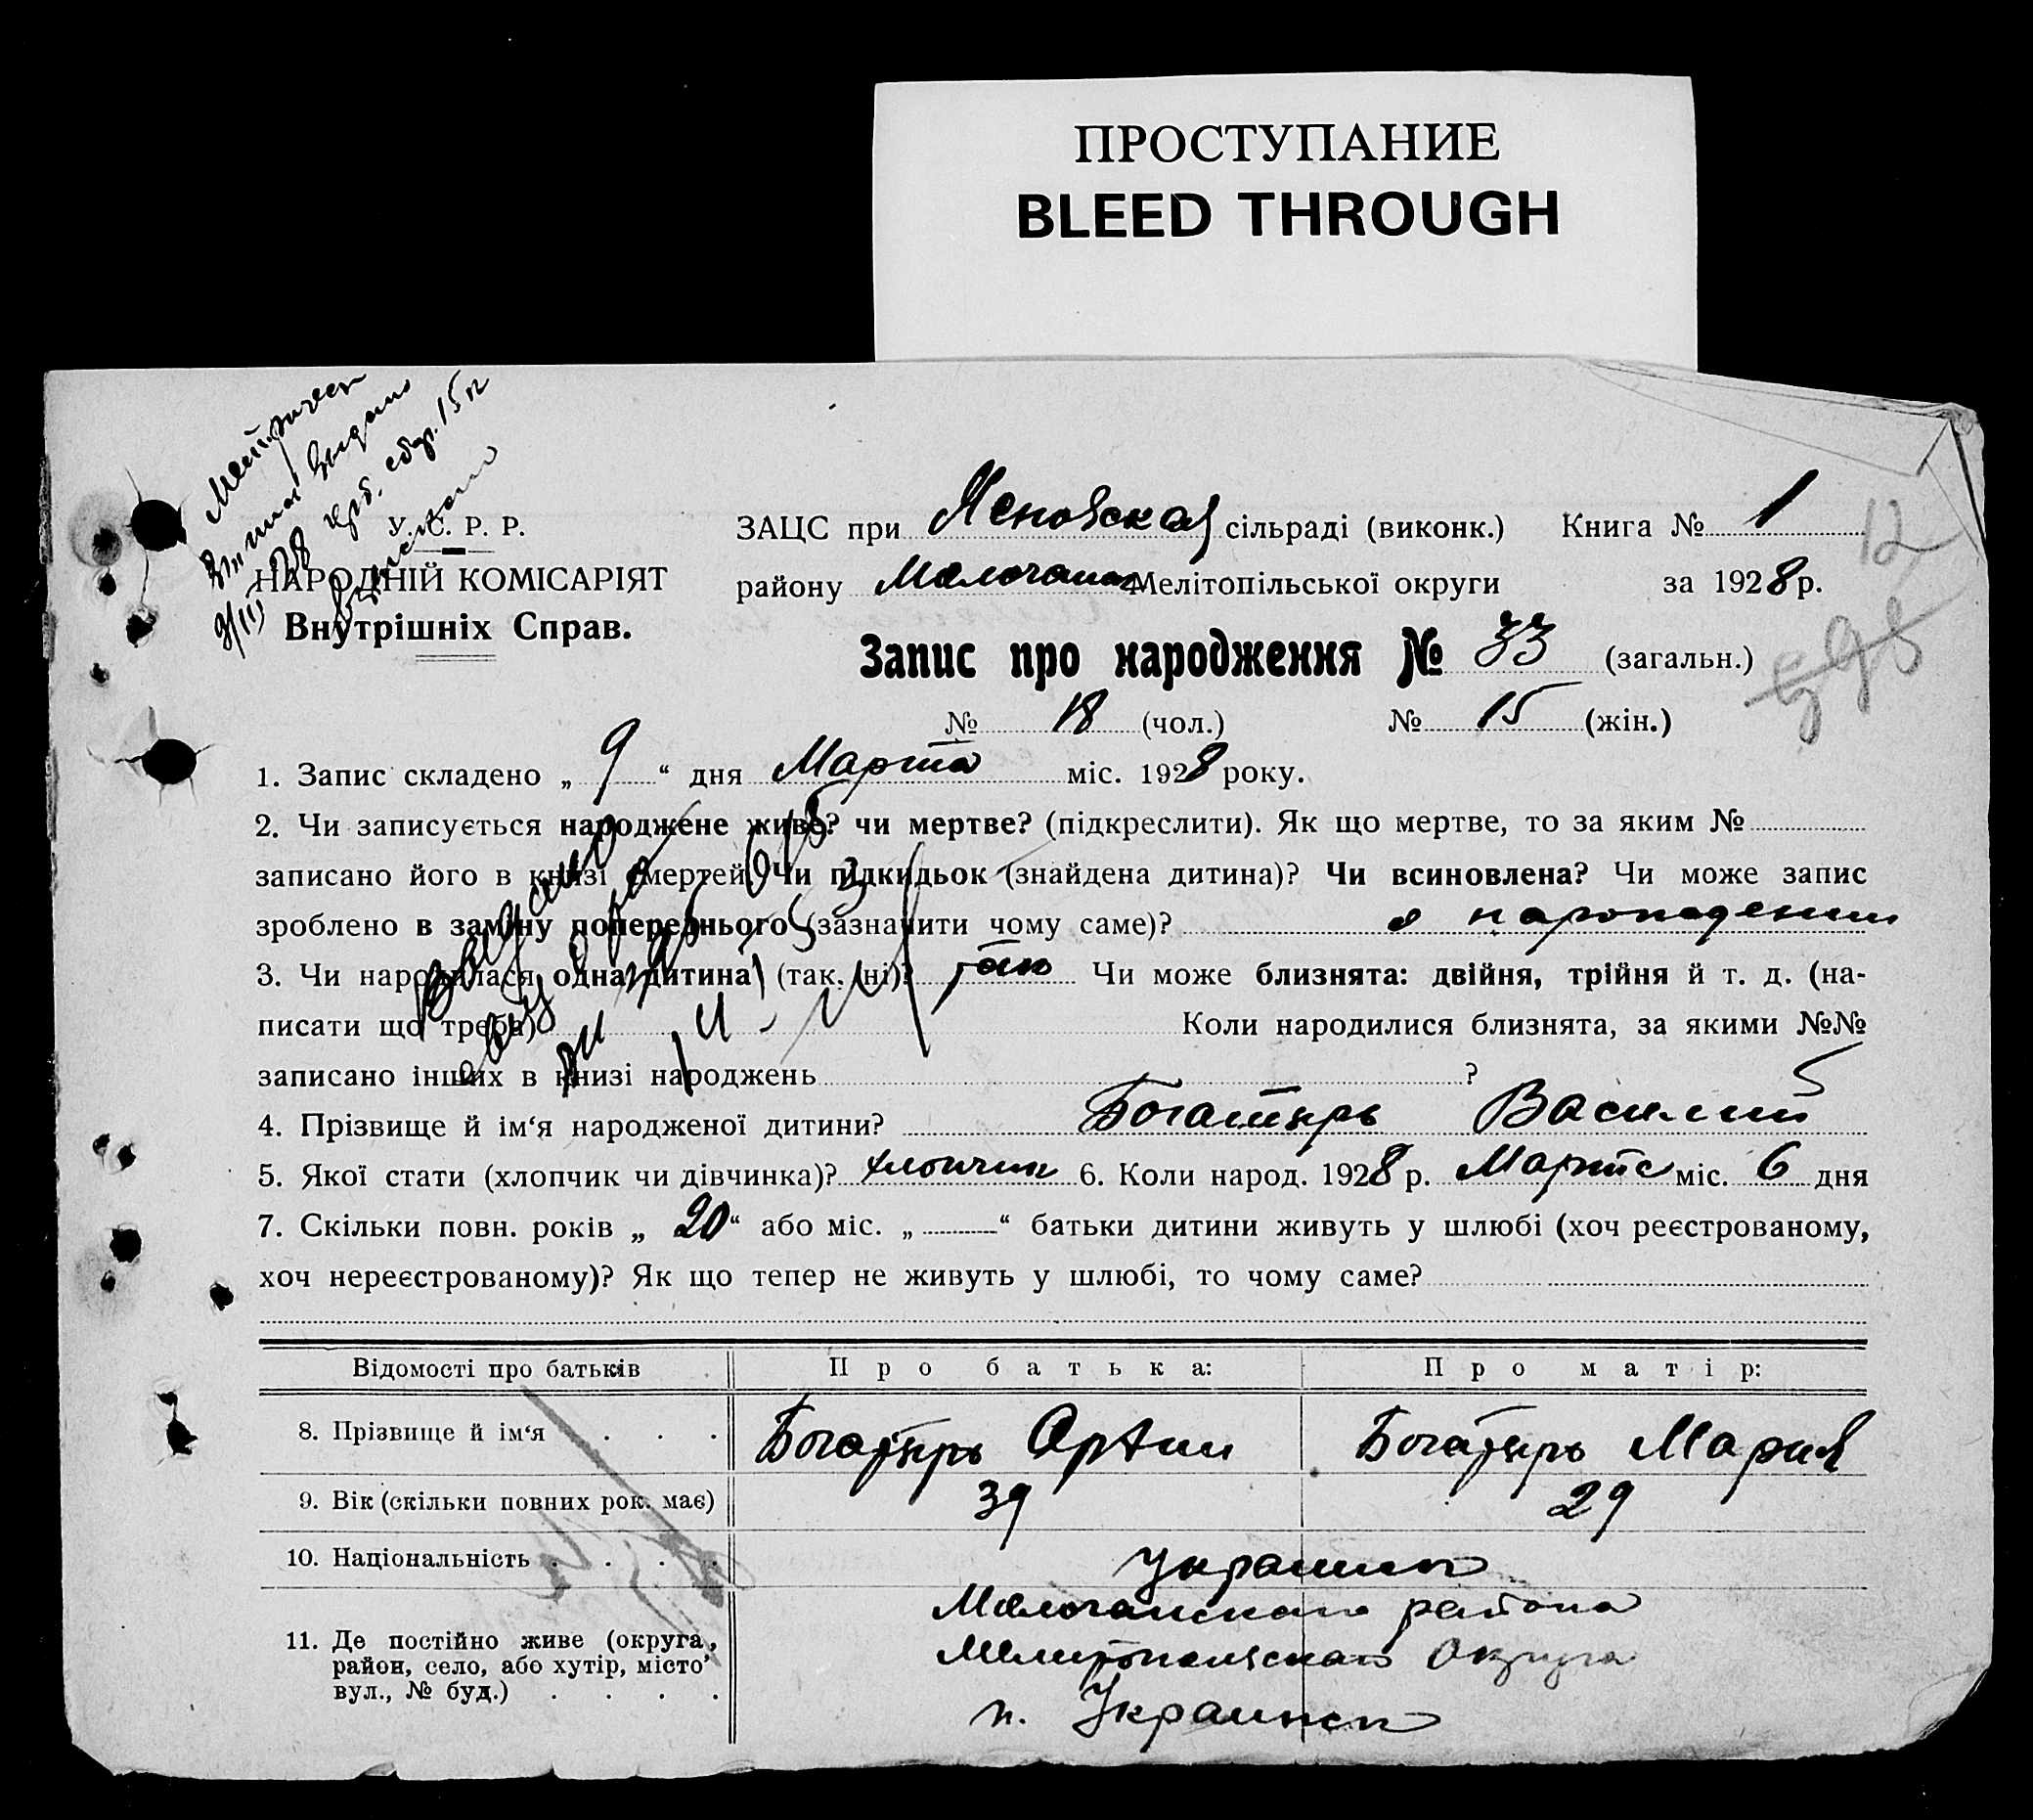 ПРОСТУПАНИЕ
BLEED THROUGH
выдано
9/III 28
У. С. Р. Р.
НАРОДНІЙ КОМІСАРІЯТ
Внутрішніх Справ.
ЗАЦС при Ясновская сільраді (виконк.) Книга № 1
12
району Мелітопільської округи за 1928 р.
Запис про народження № 33 (загальн.)
№ 18 (чол.) № 15 (жін.)
1. Запис складено „ 9 “ дня Марта міс. 1928 року.
2. Чи записується народжене живе? чи мертве? (підкреслити). Як що мертве, то за яким №
записано його в книзі смертей. Чи підкидьок (знайдена дитина)? Чи всиновлена? Чи може запис
зроблено в заміну попереднього (зазначити чому саме)? о
3. Чи народилася одна дитина (так, ні)? так Чи може близнята: двійня, трійня й т. д. (на-
писати що треба) Коли народилися близнята, за якими №№
записано інших в книзі народжень ?
4. Прізвище й ім‘я народженої дитини? Богатырь Василий
5. Якої стати (хлопчик чи дівчинка)? хлопчик 6. Коли народ. 1928 р. Марта міс. 6 дня
7. Скільки повн. років „ 20 “ або міс. „ “ батьки дитини живуть у шлюбі (хоч реєстрованому,
хоч нереєстрованому)? Як що тепер не живуть у шлюбі, то чому саме?
Відомості про батьків Про батька: Про матір:
8. Прізвище й ім‘я . . . Богатырь Артим Богатырь Мария
9. Вік (скільки повних рок. має) 39 29
10. Національність . . . . Украинц
11. Де постійно живе (округа, район, село, або хутір, місто вул., № буд.) . . . .
Молочанского района
Мелитопольского Округа
п. Украинск